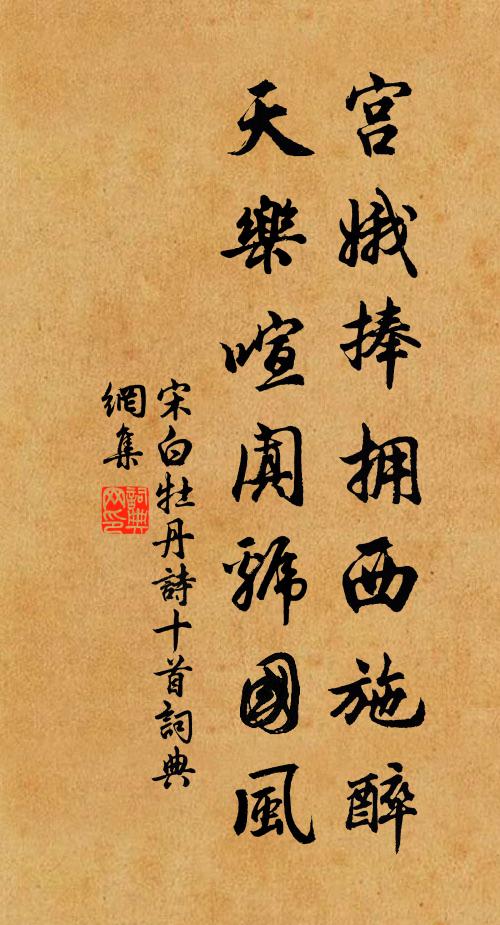 宫娥捧拥西施醉
天樂喧闐虢國風
宋白牡丹詩十首詞典
網集
詞典
网印